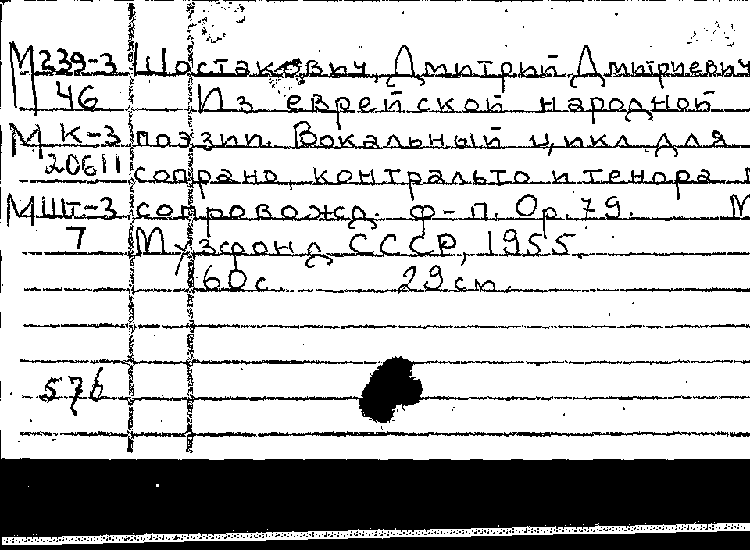 М239-3 Шостакович, Дмитрий Дмитриевич
46 Из еврейской народной
М К-3 поэзии. Вокальный цикл для
20611 сопрано, контральто и тенора
МШТ-3 сопровожд. ф-п. Ор.79. М
7 Музфонд СССР, 1955.
60с. 29см.
576